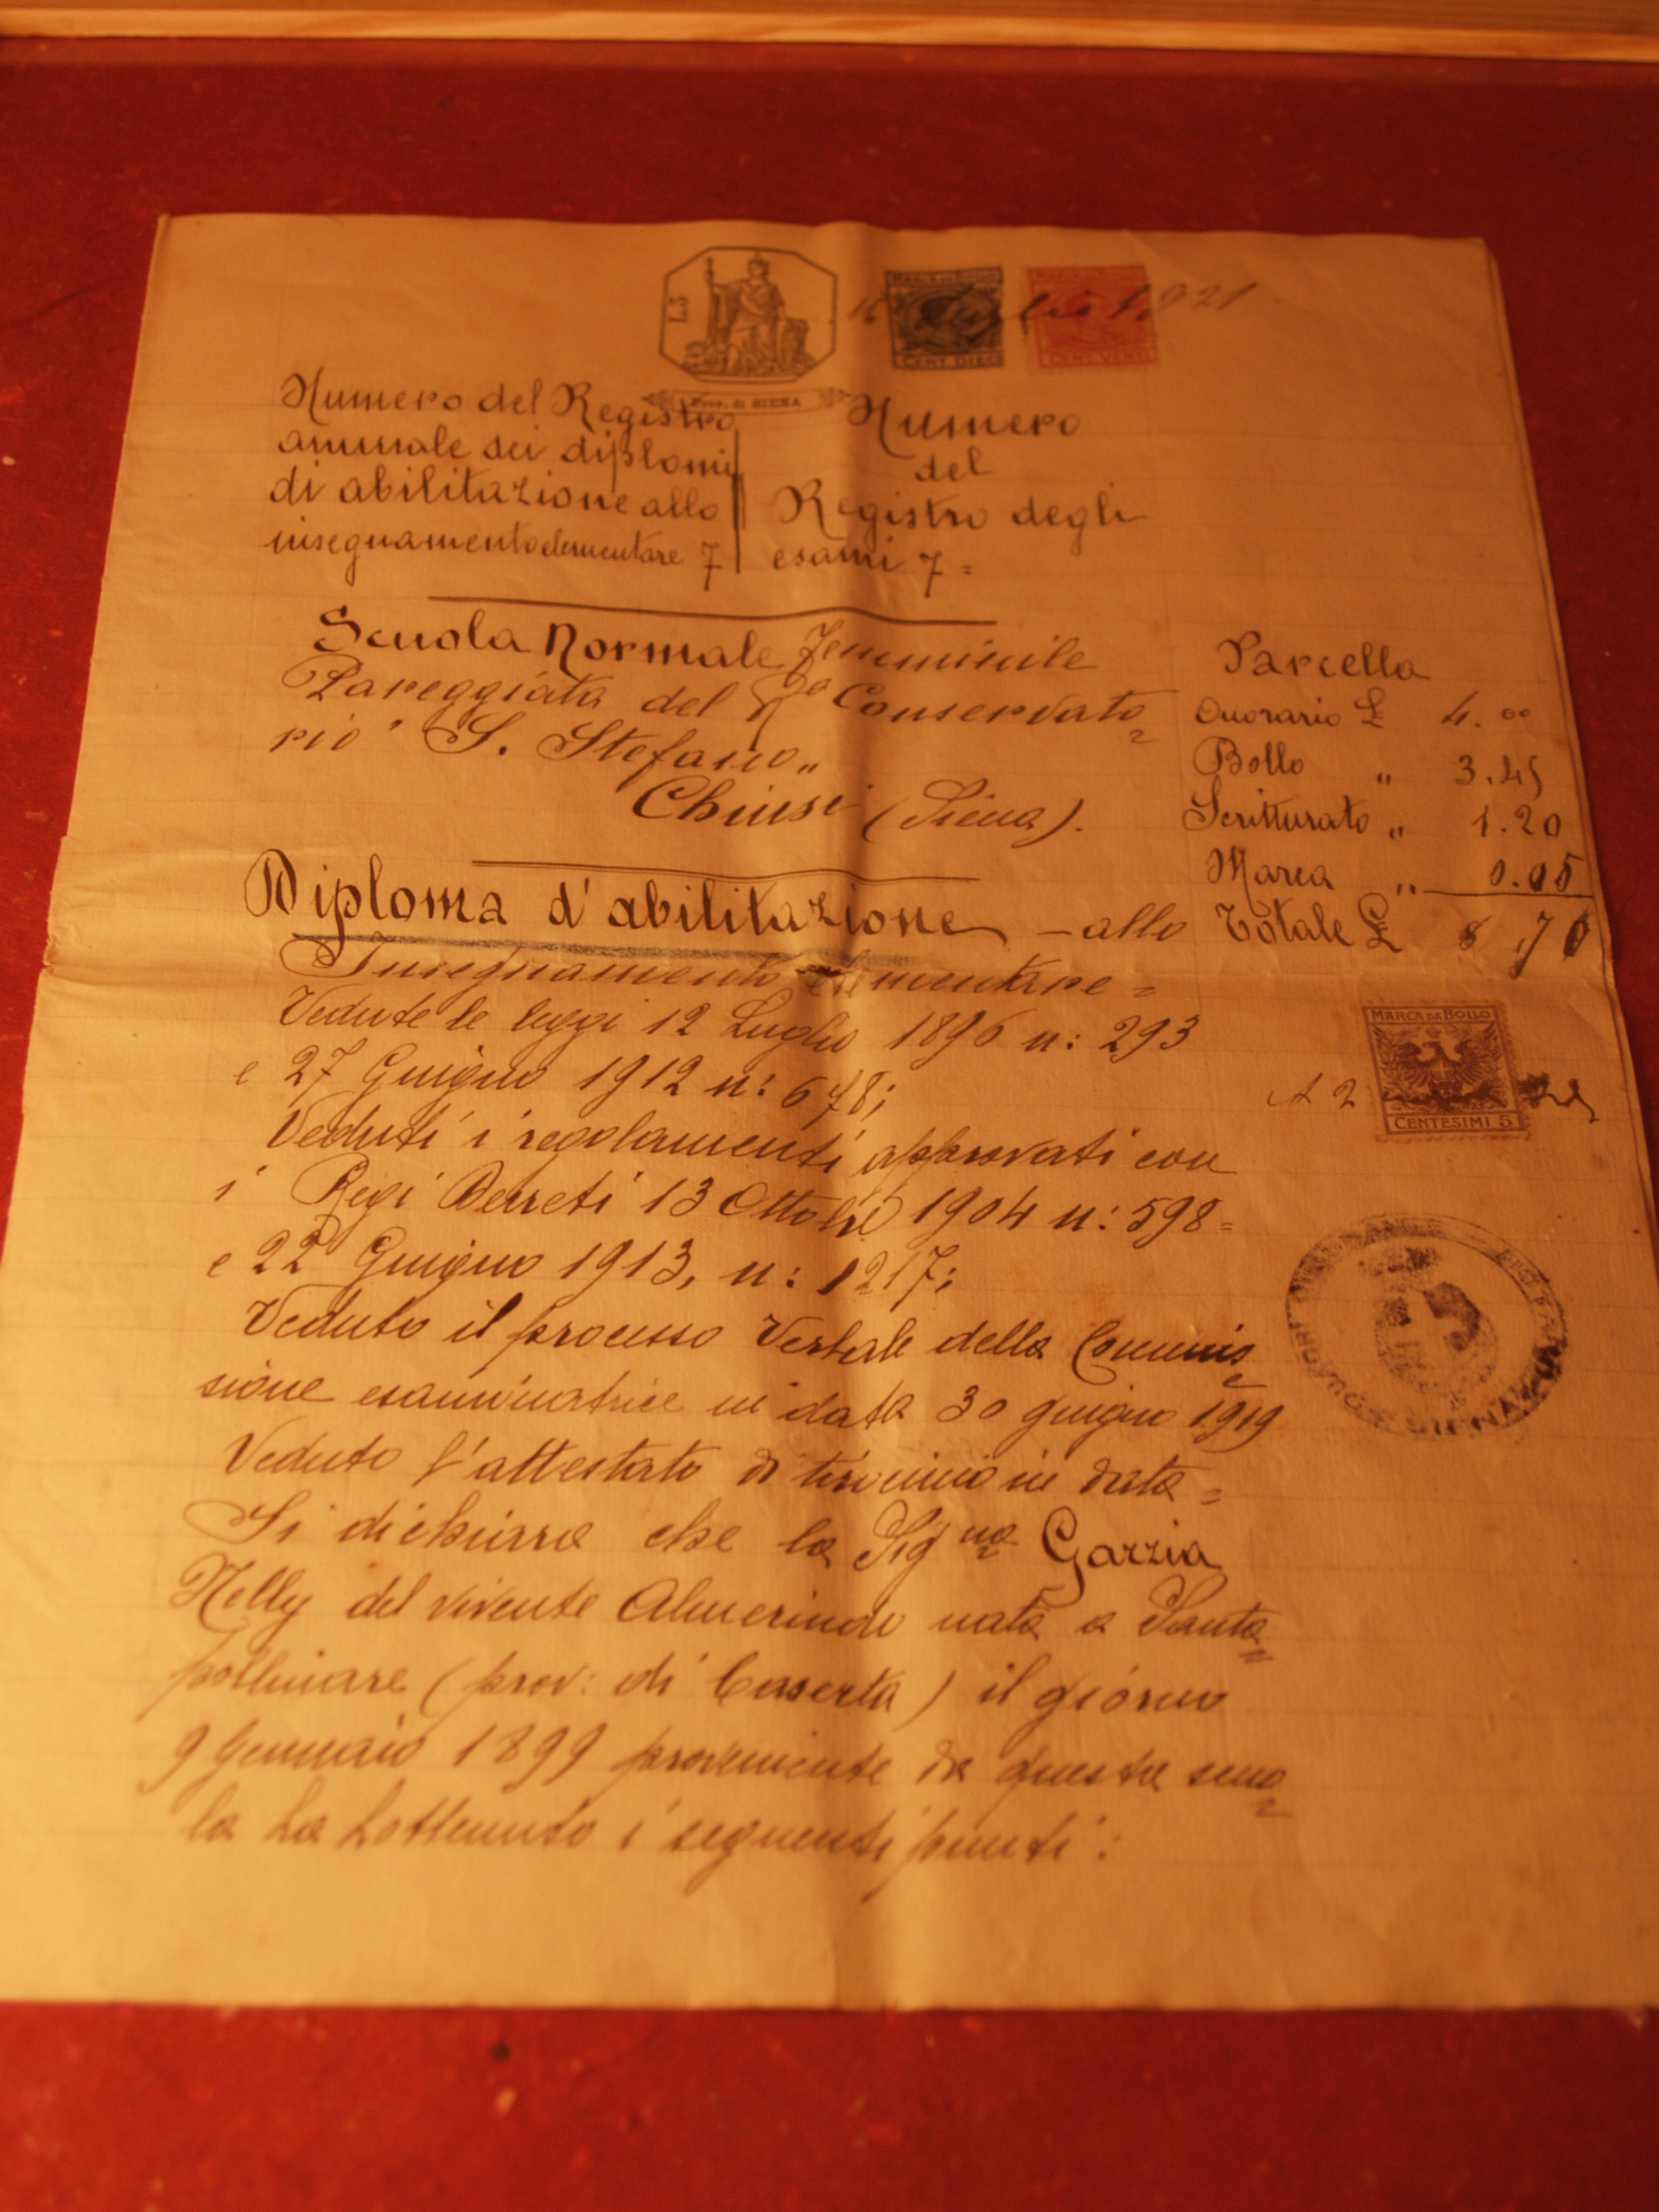 L3
Luglio 1921
MARCA DA BOLLO
CENT. DIECI
MARCA DA BOLLO
CENT. VENTI
Prov. di SIENA
Numero del Registro
annuale dei diplomi
di abilitazione allo
insegnamento elementare 7
Numero
del
Registro degli
esami 7=
Scuola Normale Femminile
Pareggiata del Rº Conservato
rio "S. Stefano„
Chiusi (Siena).
Parcella
Onorario £ 4.00
Bollo " 3.45
Scritturato " 1.20
Marca " 0.05
Totale £ 8.70
Diploma d'abilitazione - allo
Insegnamento elementare =
Vedute le leggi 12 Luglio 1896 n: 293
e 27 Giugno 1912 n: 678;
Veduti i regolamenti approvati con
i Regi Decreti 13 Ottobre 1904 n: 598=
e 22 Giugno 1913, n: 1217;
Veduto il processo Verbale della Commis
sione esaminatrice in data 30 giugno 1919
Veduto l'attestato di tirocinio in data =
Si dichiara che la Signa Garzia
Nelly del vivente Almerindo nata a Santa
pollinare (prov: di Caserta) il giorno
9 Gennaio 1899 proveniente da questa scuo
la ha hottenuto i seguenti punti:
MARCA DA BOLLO
CENTESIMI 5